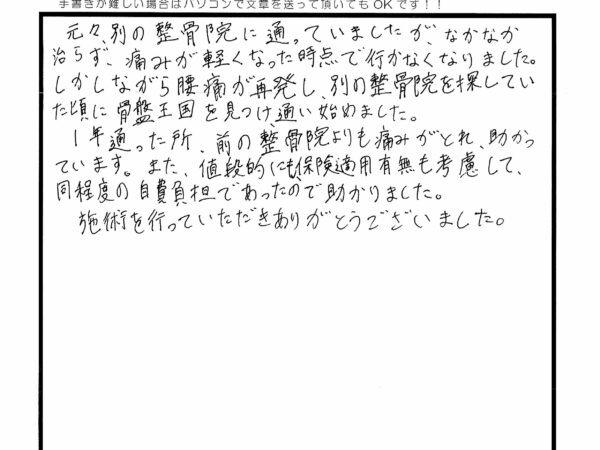 手書きが難しい場合はパソコンで文章を送って頂いてもOKです！！
元々、別の整骨院に通っていましたが、なかなか
治らず、痛みが軽くなった時点で行かなくなりました。
しかしながら腰痛が再発し、別の整骨院を探してい
た頃に骨盤王国を見つけ通い始めました。
1年通った所、前の整骨院よりも痛みがとれ、助かっ
ています。また、値段的にも保険適用有無も考慮して、
同程度の自費負担であったので助かりました。
施術を行っていただきありがとうございました。